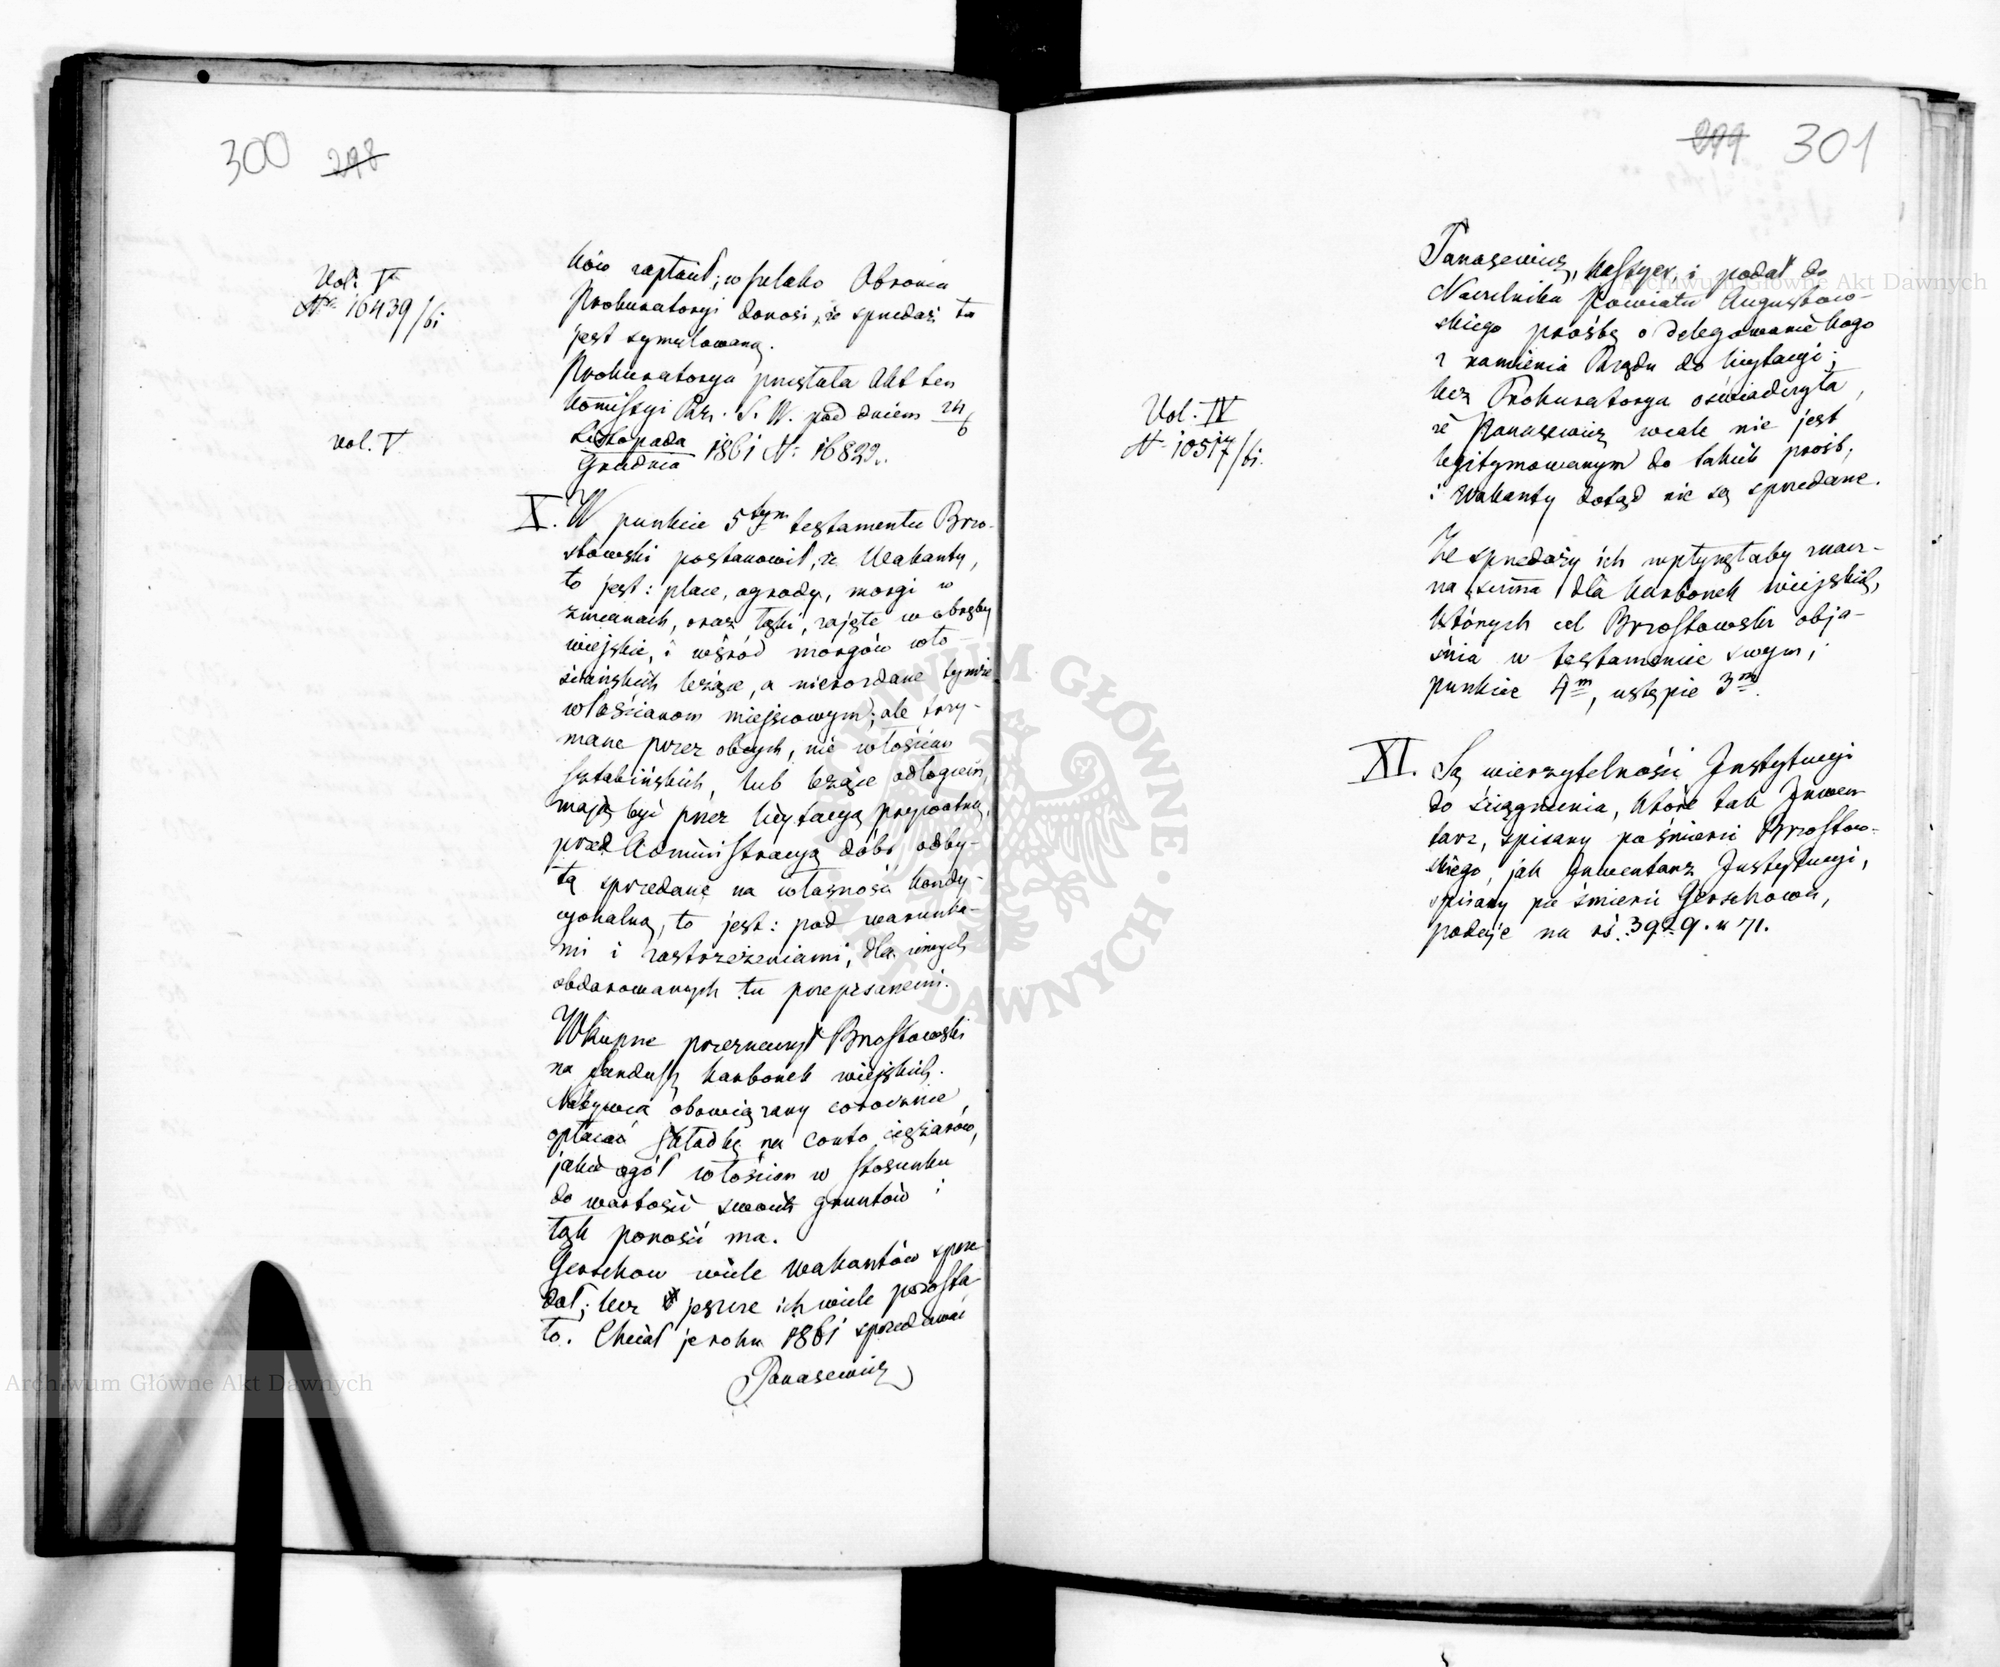 300 298
Vol. V
№ 16439/61
ków zapłacił; wszelako Obrońca
Prokuratoryi donosi, że sprzedaż ta
jest symulowaną.
Prokuratorya przesłała Akt ten
Kommissyi Rz. S. W. pod dniem 24/6
vol. V
Listopada
Grudnia 1861 N: 16822.
X. W punkcie 5tym testamentu Brzo-
stowski postanowił, że Wakanty,
to jest: place, ogrody, morgi w
zmianach, oraz łąki, zajęte w obręby
wiejskie, i wśród morgów wło-
ściańskich leżące, a nierozdane tymże
włościanom miejscowym; ale trzy-
mane przez obcych, nie włościan
sztabińskich, lub leżące odłogiem,
mają być przez licytacyą prywatną,
przed Administracyą dóbr odby-
tą sprzedane na własność kondy-
cyonalną, to jest: pod warunka-
mi i zastrzeżeniami, dla innych
obdarowanych tu przepisanemi.
Wkupne przeznaczył Brzostowski
na fundusz karbonek wiejskich.
Nabywca obowiązany corocznie
opłacać składkę na conto ciężarów,
jakie ogół włościan w stosunku
do wartości swoich gruntów i
łąk ponosić ma.
Gerschow wiele Wakantów sprze-
dał; lecz jeszcze ich wiele pozosta-
ło. Chciał je roku 1861 sprzedawać
Panasewicz
299 301
Panasewicz, kassyer, i podał do
Naczelnika Powiatu Augustow-
skiego prośbę o delegowanie kogo
z ramienia Rządu do licytacyi;
lecz Prokuratorya oświadczyła,
Vol. IV
№ 10517/61.
że Panasewicz wcale nie jest
legitymowanym do takich prośb,
i Wakanty dotąd nie są sprzedane.
Ze sprzedaży ich wpłynęłaby znacz-
na summa dla karbonek wiejskich,
których cel Brzostowski obja-
śnia w testamencie swym,
punkcie 4m, ustępie 3m.
XI. Są wierzytelności Instytucyi
do ściągnienia, które tak Inwen
tarz, spisany po śmierci Brzostow-
skiego, jak Inwentarz Instytucyi,
spisany po śmierci Gerschowa,
podaje na rs. 3929. k 71.
Archiwum Główne Akt Dawnych
Archiwum Główne Akt Dawnych
ARCHIWUM GŁÓWNE AKT DAWNYCH